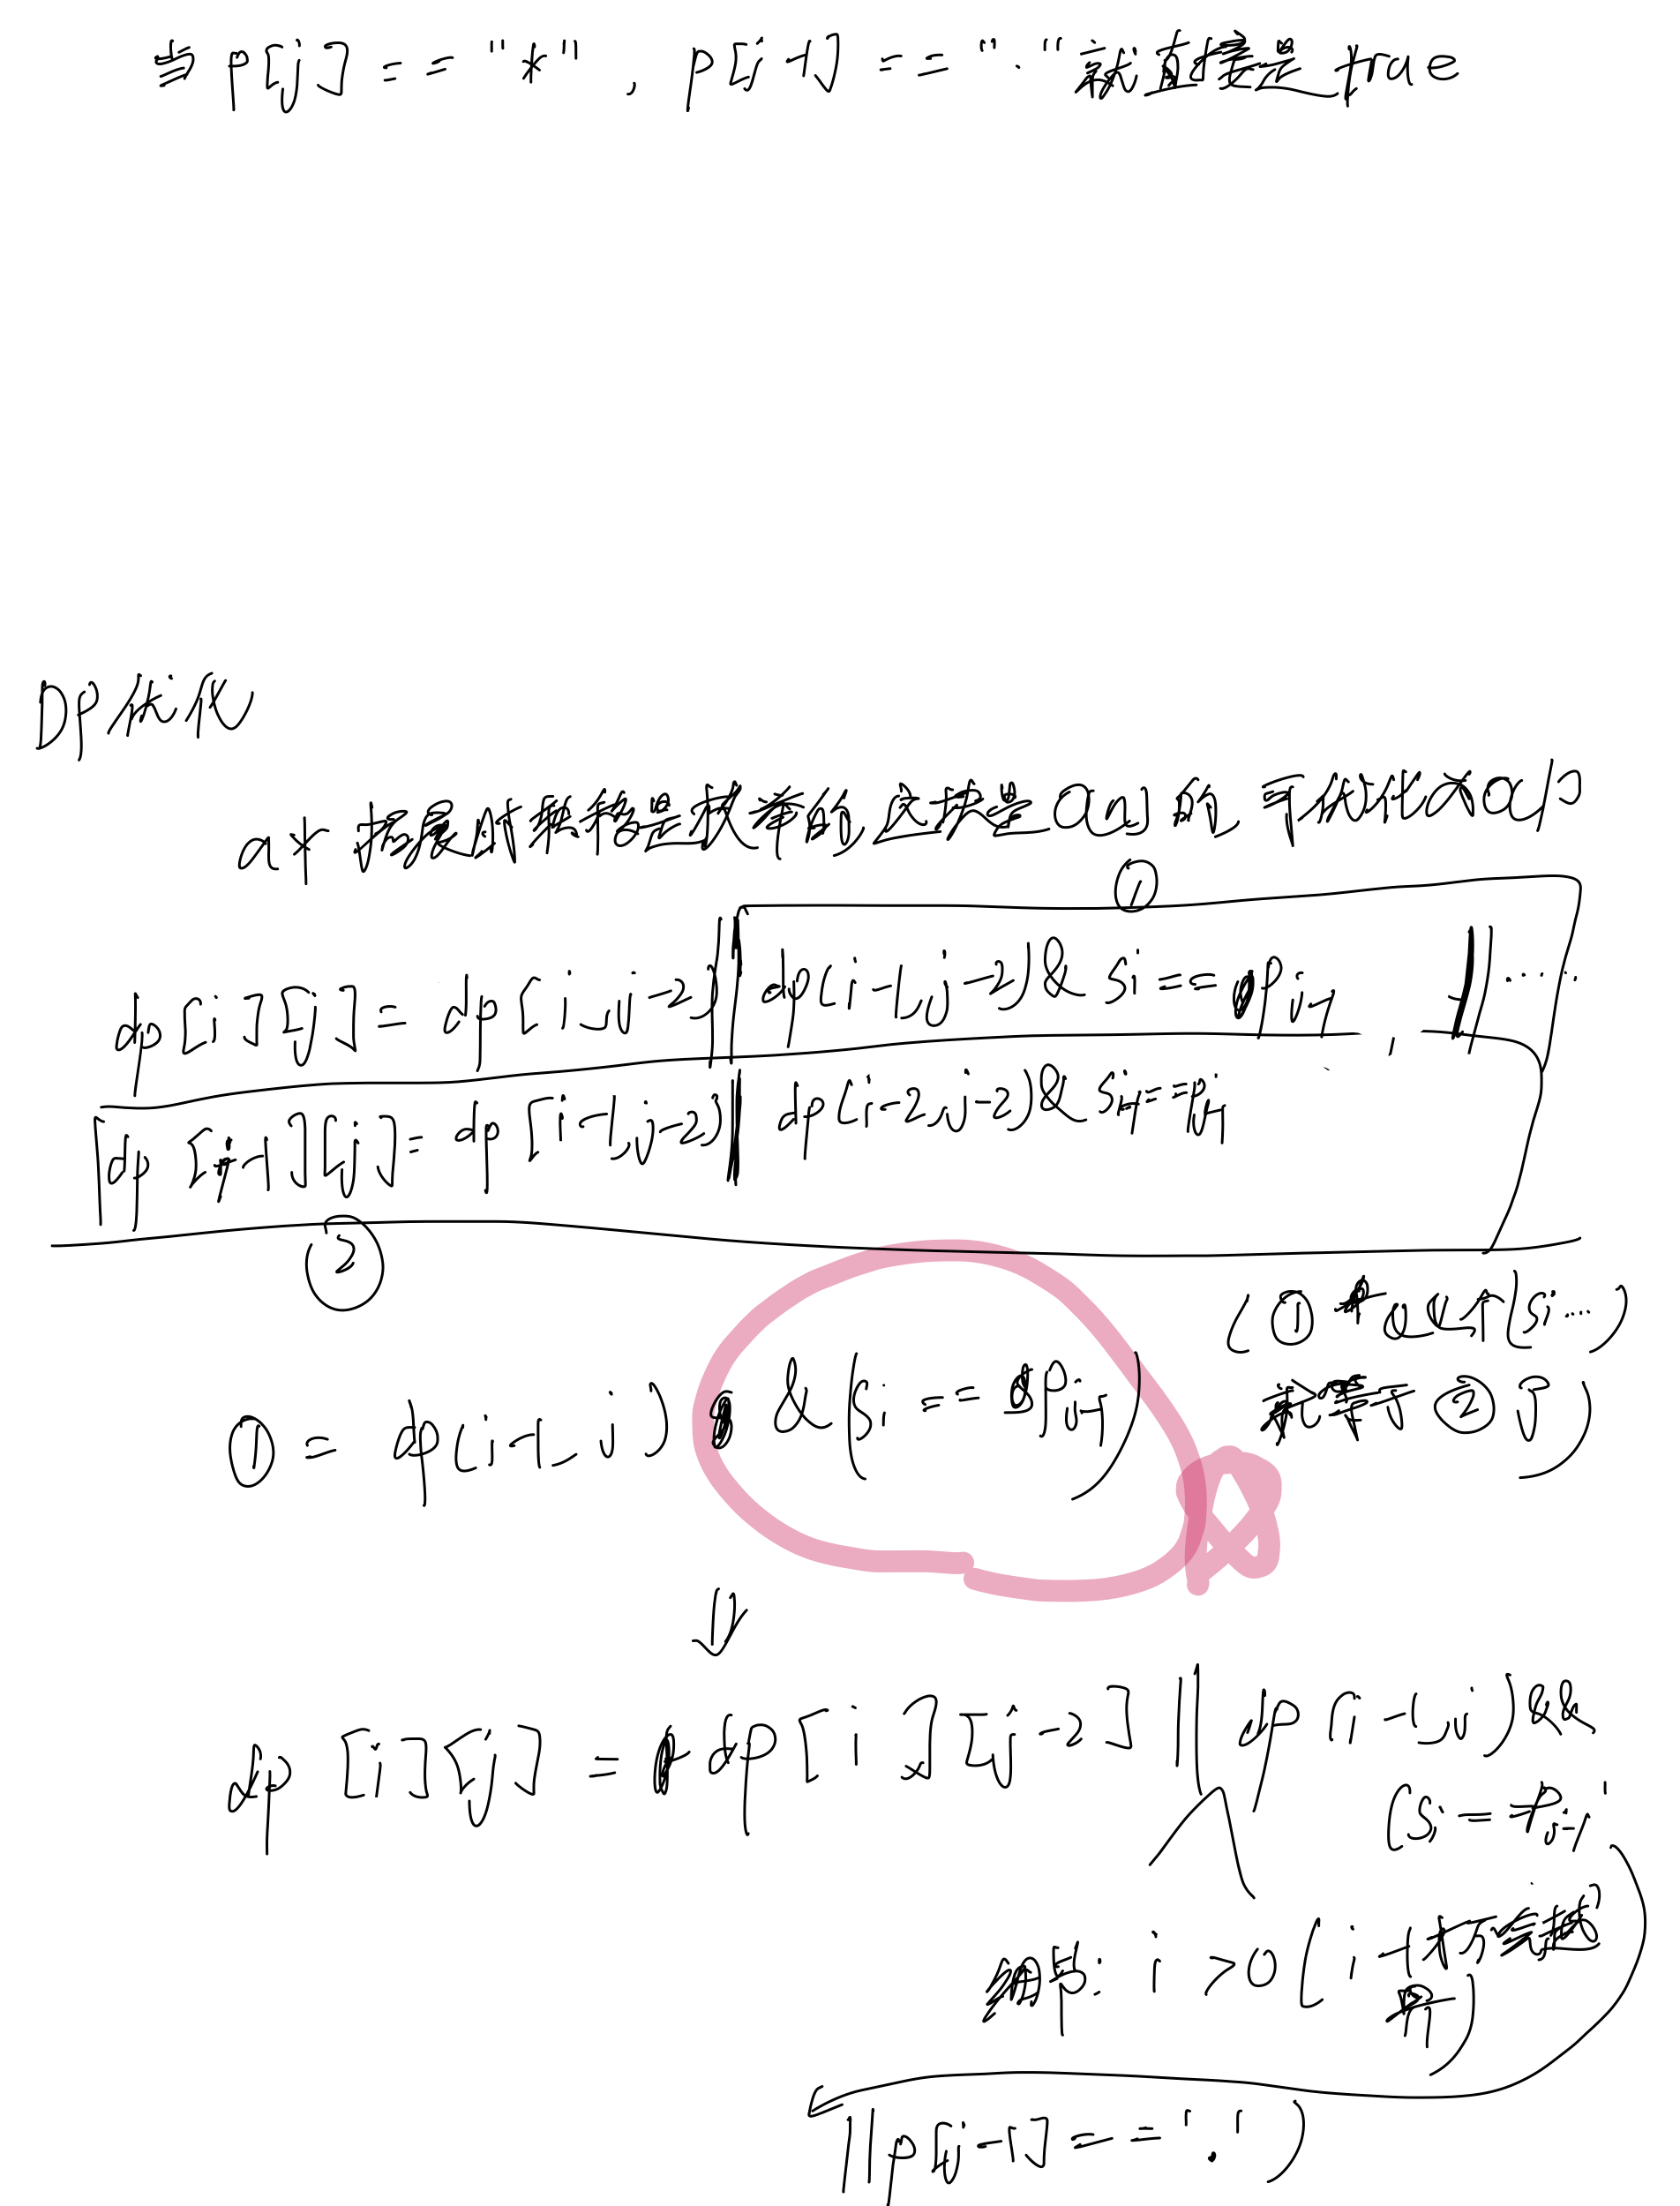 当 p[j] == "*", p[j-1] == "." 就直接是 true
DP优化
a* 拓展的转移是枚举的 这块是O(n)的 可优化为O(1)
①
dp[i][j] = dp[i,j-2] || dp(i-1,j-2) & si == pj-1, || ....
dp[i-1][j] = dp[i-1,j-2) || dp(i-2,j-2) & si-1 == pj-1
②
(① 中 (si...)
就等于 ②)
① = dp(i-1,j) & (si == pj-1)
dp[i][j] = dp[i][j-2] || dp[i-1,j) &&
(si == pj-1
细节: i > 0 (i-1才不会越
界)
|| p[j-1] == '.')